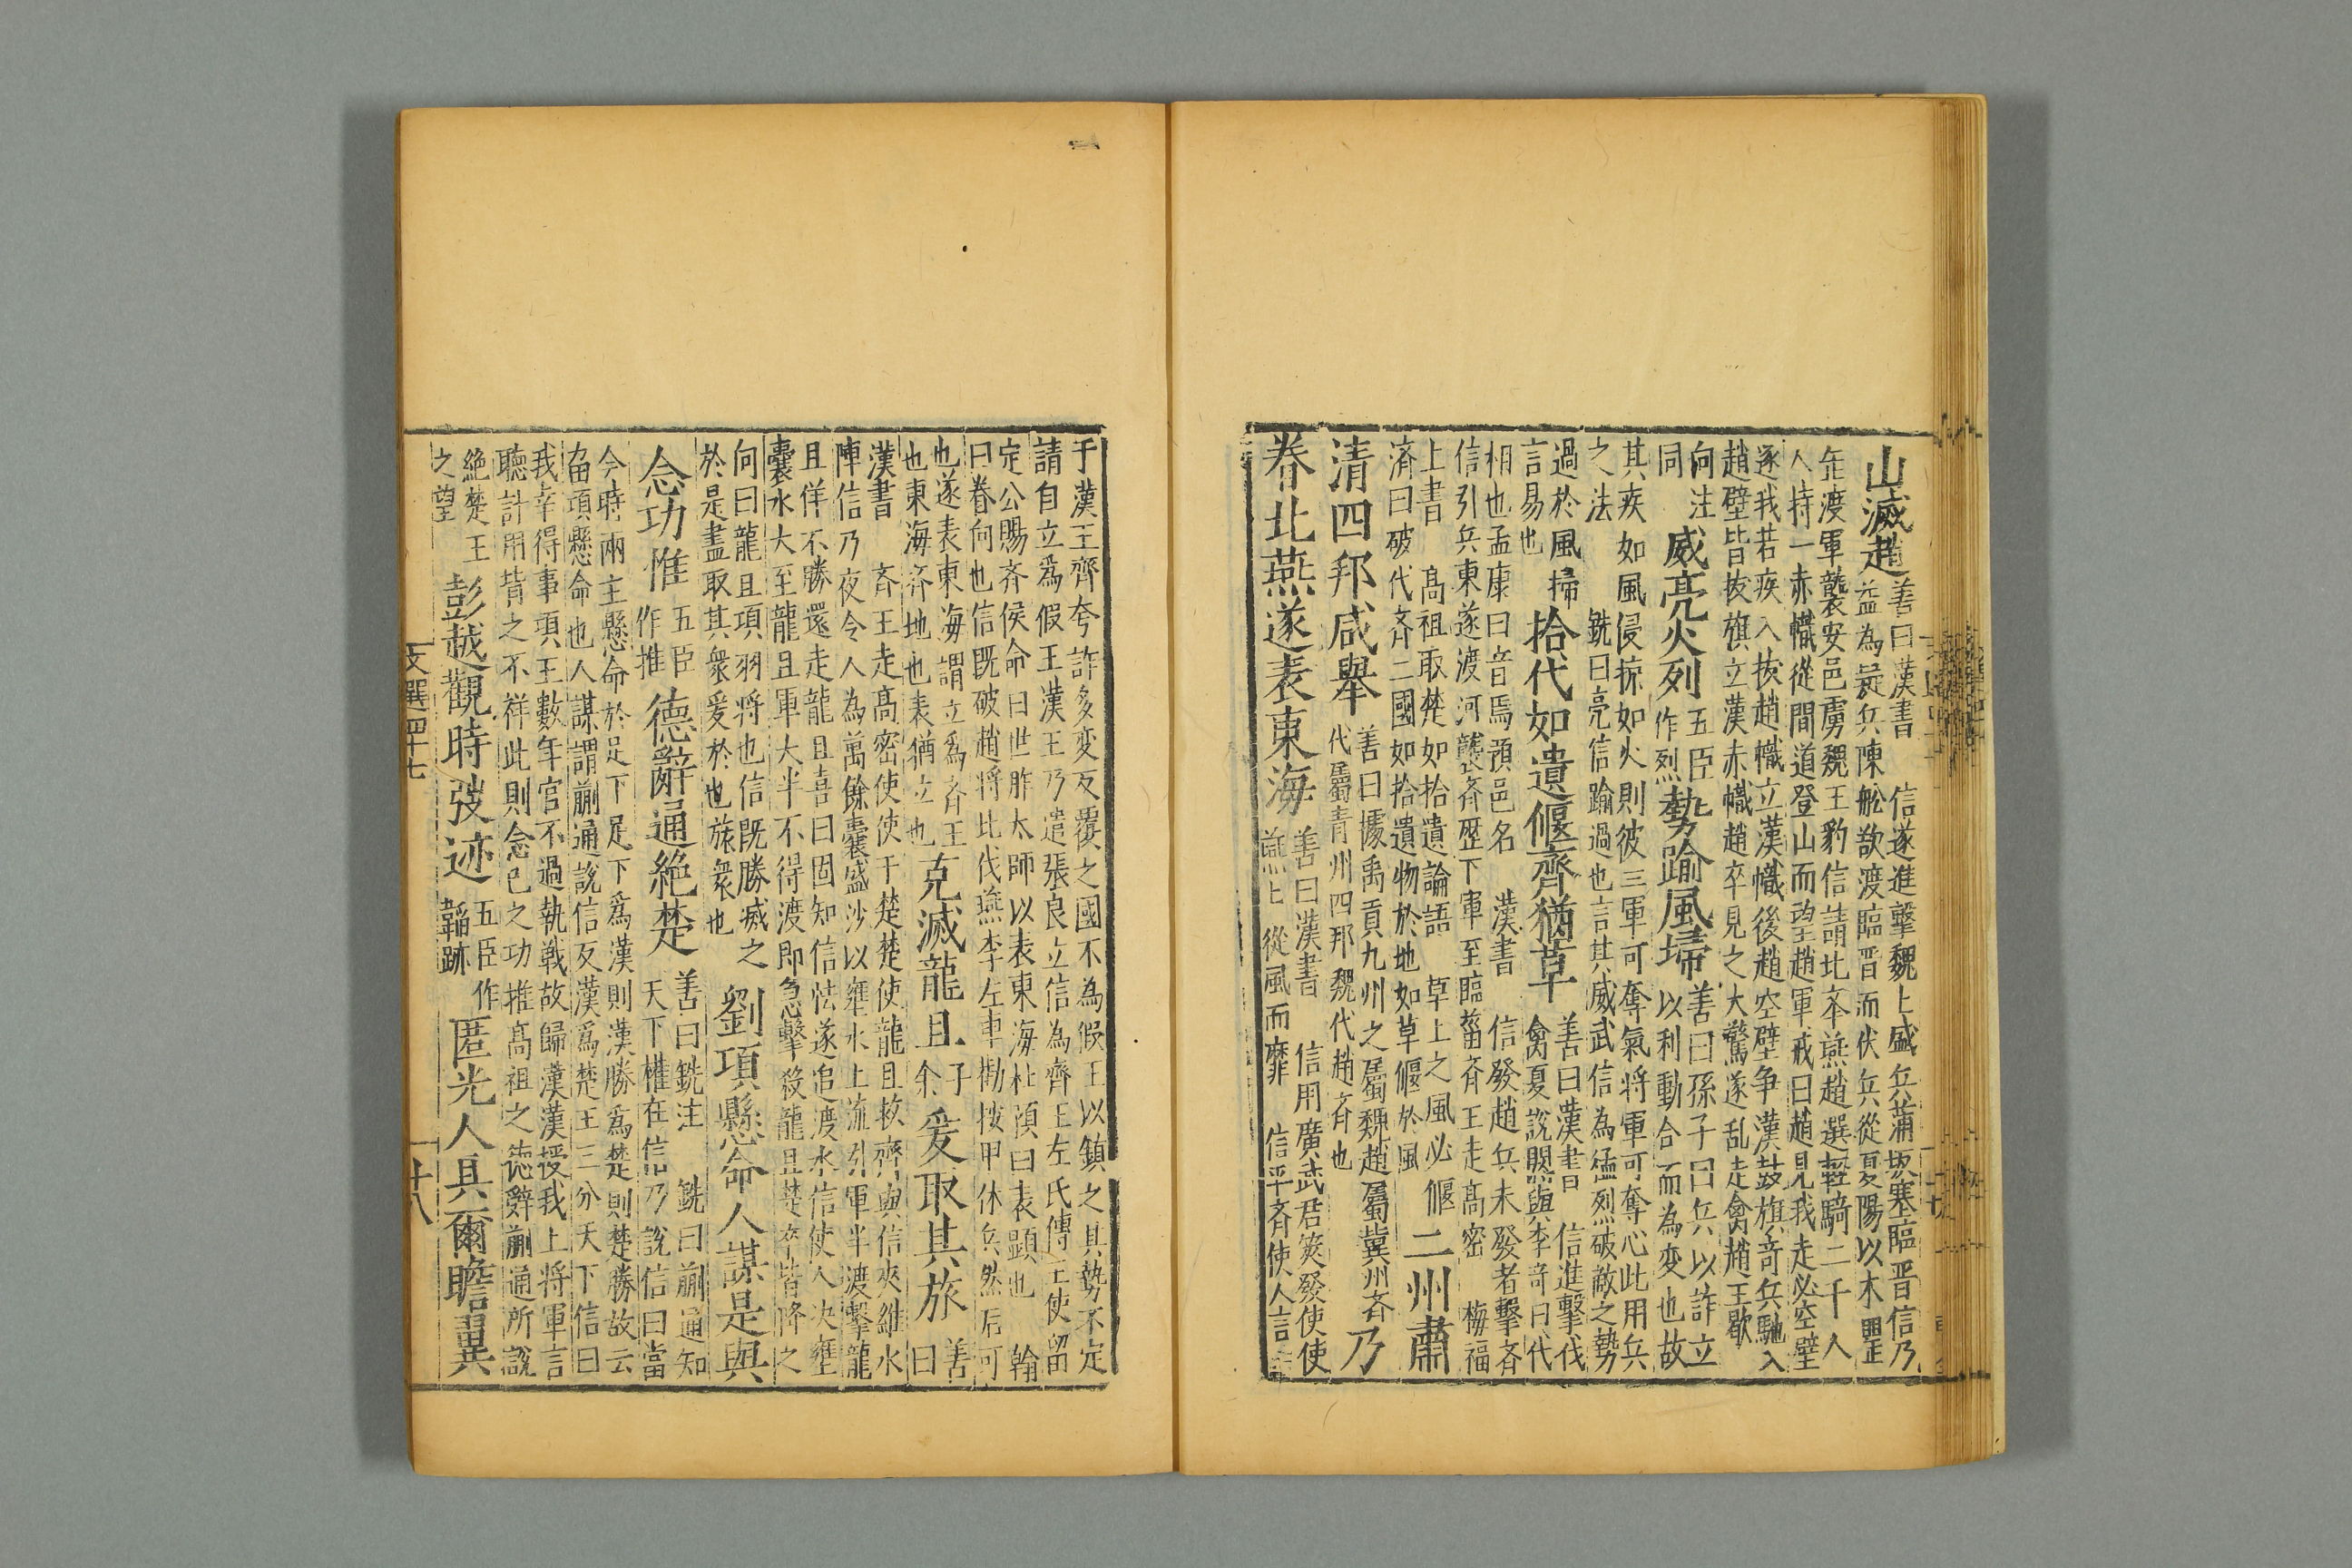 山滅趙善曰漢書 信遂進擊魏上盛兵蒲坂塞臨晋信乃
益為疑兵陳舩欲渡臨晋而伏兵從夏陽以木罌
缻渡軍襲安邑虜魏王豹信請北舉燕趙選輕騎二千人
人持一赤幟從間道登山而望趙軍戒曰趙見我走必空壁
逐我若疾入拔趙幟立漢幟後趙空壁争漢鼓旗奇兵馳入
趙壁皆拔旗立漢赤幟趙卒見之大驚遂乱走禽趙王歇
向注
同 威亮火列五臣作烈勢踰風埽善曰孫子曰兵以詐立
以利動合而為变也故
其疾如風侵掠如火則彼三軍可奪氣将軍可奪心此用兵
之法 銑曰亮信踰過也言其威武信為猛烈破敵之勢
過於風掃
言易也 拾代如遺偃齊猶草善曰漢書 信進擊伐
禽夏說閼與李奇曰代
相也孟康曰音焉預邑名 漢書 信發趙兵未發者擊斉
信引兵東遂渡河襲斉歷下軍至臨菑斉王走髙密 梅福
上書 髙祖取楚如拾遺論語 草上之風必偃
濟曰破代斉二國如拾遺物於地如草偃於風 二州肅
清四邦咸舉善曰據禹貢九州之屬魏趙屬冀州斉
代屬青州四邦魏代趙斉也 乃
眷北燕遂表東海善曰漢書 信用廣武君筴發使使
燕上從風而靡 信平斉使人言
于漢王齊夸詐多变反覆之國不為假王以鎮之其勢不定
請自立爲假王漢王乃遣張良立信為齊王左氏傳王使留
定公賜斉侯命曰世胙太師以表東海杜預曰表顕也 翰
曰眷向也信既破趙将北伐燕李左車勸按甲休兵然后可
也遂表東海謂立為斉王
也東海斉地也表猶立也 克滅龍且子余爰取其旅善曰
漢書 斉王走髙密使使于楚楚使龍且救齊與信夾維水
陣信乃夜令人為萬餘囊盛沙以壅水上流引軍半渡擊龍
且佯不勝還走龍且喜曰固知信怯遂追渡水信使人决壅
囊水大至龍且軍大半不得渡即急擊殺龍且楚卒皆降之
向曰龍且項羽将也信既勝滅之
於是盡取其衆爰於也旅衆也 劉項懸命人謀是與
念功惟五臣作推德辭通絶楚善曰銑注 銑曰蒯通知
天下權在信乃說信曰當
今時兩主懸命於足下足下爲漢則漢勝爲楚則楚勝故云
畱項懸命也人謀謂蒯通說信反漢爲楚王三分天下信曰
我幸得事項王數年官不過執戟故歸漢漢授我上将軍言
聽計用背之不祥此則念己之功推髙祖之德辭蒯通所說
絶楚王
之望 彭越觀時弢迹五臣作韜跡匿光人具爾瞻翼
文選四十七
十八